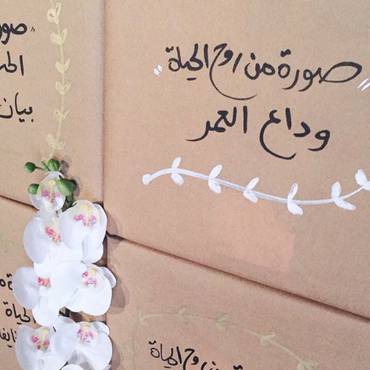 "صورة من روح الحياة"
وداع العمر
بيان
من روح الحياة